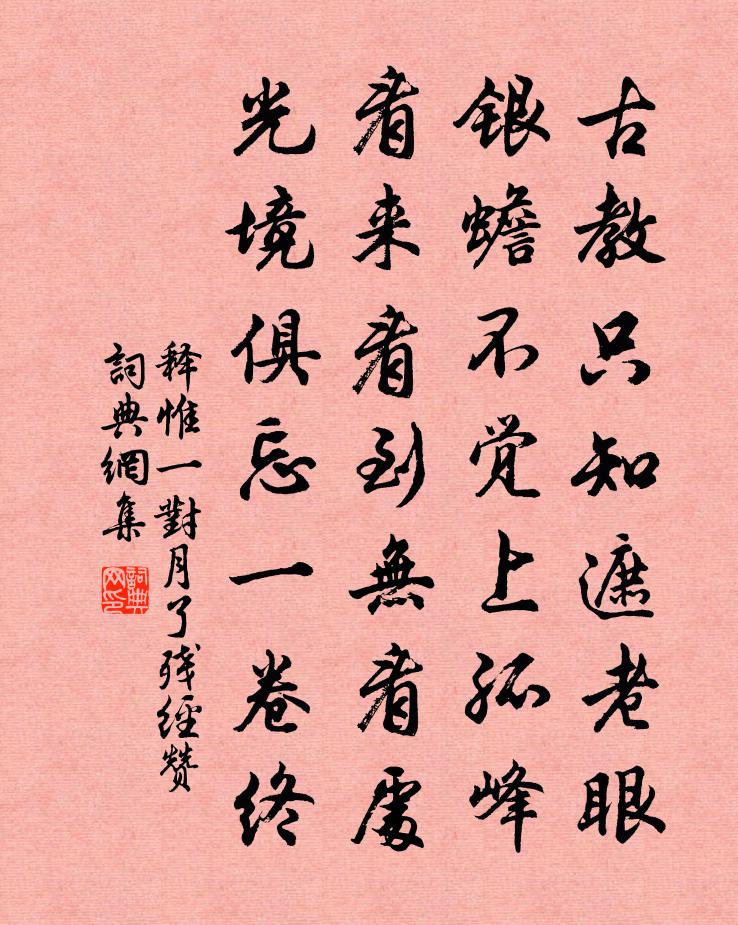 古教只知遮老眼
銀蟾不觉上孤峰
看来看到無看處
光境俱忘一卷终
释惟一對月了残經赞
詞典網集
詞典网印